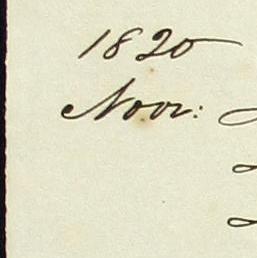 1820
Novr: